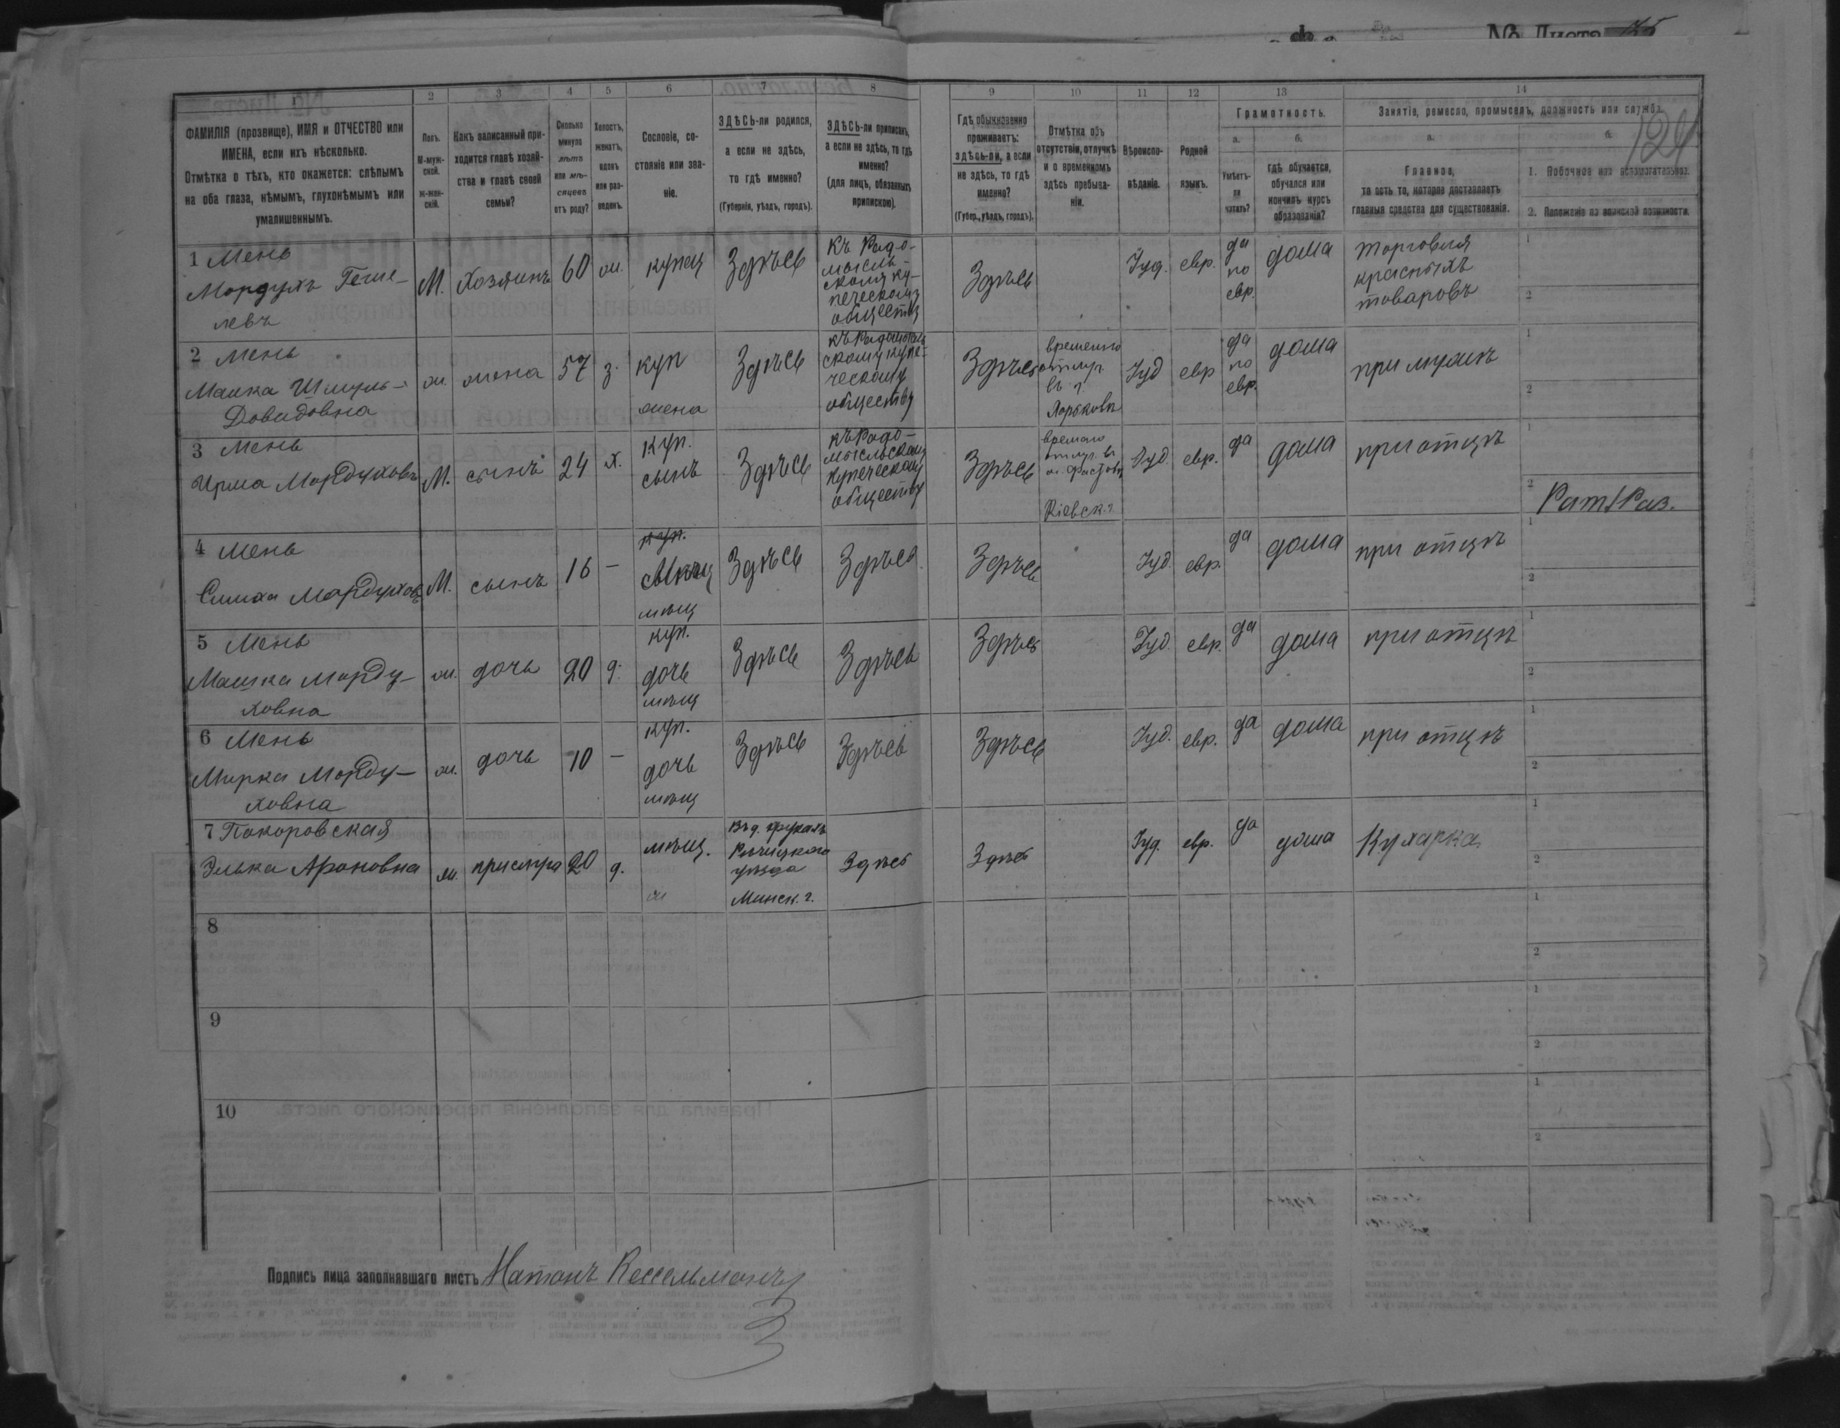 № Листа
124
1 2 3 4 5 6 7 8 9 10 11 12 13 14
ФАМИЛІЯ (прозвище), ИМЯ и ОТЧЕСТВО или
ИМЕНА, если ихъ нѣсколько.
Отмѣтка о тѣхъ, кто окажется: слѣпымъ
на оба глаза, нѣмымъ, глухонѣмымъ или
умалишеннымъ.
Полъ.
М-муж-
ской.
Ж-жен-
скій.
Какъ записанный при-
ходится главѣ хозяй-
ства и главѣ своей
семьи?
Сколько
минуло
лѣтъ
или мѣ-
сяцевъ
отъ роду?
Холостъ,
женатъ,
вдовъ
или раз-
веденъ.
Сословіе, со-
стояніе или зва-
ніе.
ЗДѢСЬ-ли родился,
а если не здѣсь,
то гдѣ именно?
(Губернія, уѣздъ, городъ).
ЗДѢСЬ-ли приписанъ,
а если не здѣсь, то гдѣ
именно?
(для лицъ, обязанныхъ
припискою).
Гдѣ обыкновенно
проживаетъ:
здѣсь-ли, а если
не здѣсь, то гдѣ
именно?
(Губер., уѣздъ, городъ).
Отмѣтка объ
отсутствіи, отлучкѣ
и о временномъ
здѣсь пребыва-
ніи.
Вѣроиспо-
вѣданіе.
Родной
языкъ.
Грамотность.
а.
Умѣетъ-
ли
читать?
б.
гдѣ обучается,
обучался или
кончилъ курсъ
образованія?
Занятіе, ремесло, промыселъ, должность или служба.
а.
Главное,
то есть то, которое доставляетъ
главныя средства для существованія.
б.
1. Побочное или вспомогательное.
2. Положеніе по воинской повинности.
1 Мень
Мордухъ Геше-
левъ
М. Хозяинъ 60 ж. купец Здѣсь
Къ Радо-
мысль-
скому ку-
печескому
обществу
Здѣсь Іуд. евр. да
по
евр.
дома
Торговля
красныхъ
товаровъ
2 Мень
Машка Шмуль-
Довидовна
ж. жена 57 з. куп
жена
Здѣсь
къ Радомысль
скому купе-
ческому
обществу
Здѣсь
временно
отлуч.
въ г.
Харьковъ
Іуд евр да
по
евр.
дома при мужѣ
3 Мень
Ирма Мордуховъ
М. сынъ 24 х. куп.
сынъ
Здѣсь
къ Радо-
мысльскому
купеческому
обществу
Здѣсь
Кіевск. г.
Іуд евр. да дома при отцѣ
Рат/Раз.
4 Мень
Симха Мордуховъ
М. сынъ 16 — куп.
мѣщ
Здѣсь Здѣсь Здѣсь Іуд. евр. да дома при отцѣ
5 Мень
Машка Морду-
ховна
ж. дочь 20 д. куп.
дочь
мѣщ
Здѣсь Здѣсь Здѣсь Іуд. евр. да дома при отцѣ
6 Мень
Мирка Морду-
ховна
ж. дочь 10 — куп.
дочь
мѣщ
Здѣсь Здѣсь Здѣсь Іуд. евр. да дома при отцѣ
7 Покоровская
Элька Ароновна
ж. прислуга 20 д. мѣщ.
Рѣчицкого
уѣзда
Минск. г.
Здѣсь Здѣсь Іуд. евр. да дома Кухарка
8
9
10
Подпись лица заполнявшаго листъ Натанъ Кессельманъ